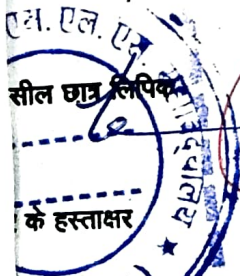 एम. एल. एस.
सील छात्र लिपिक
के हस्ताक्षर